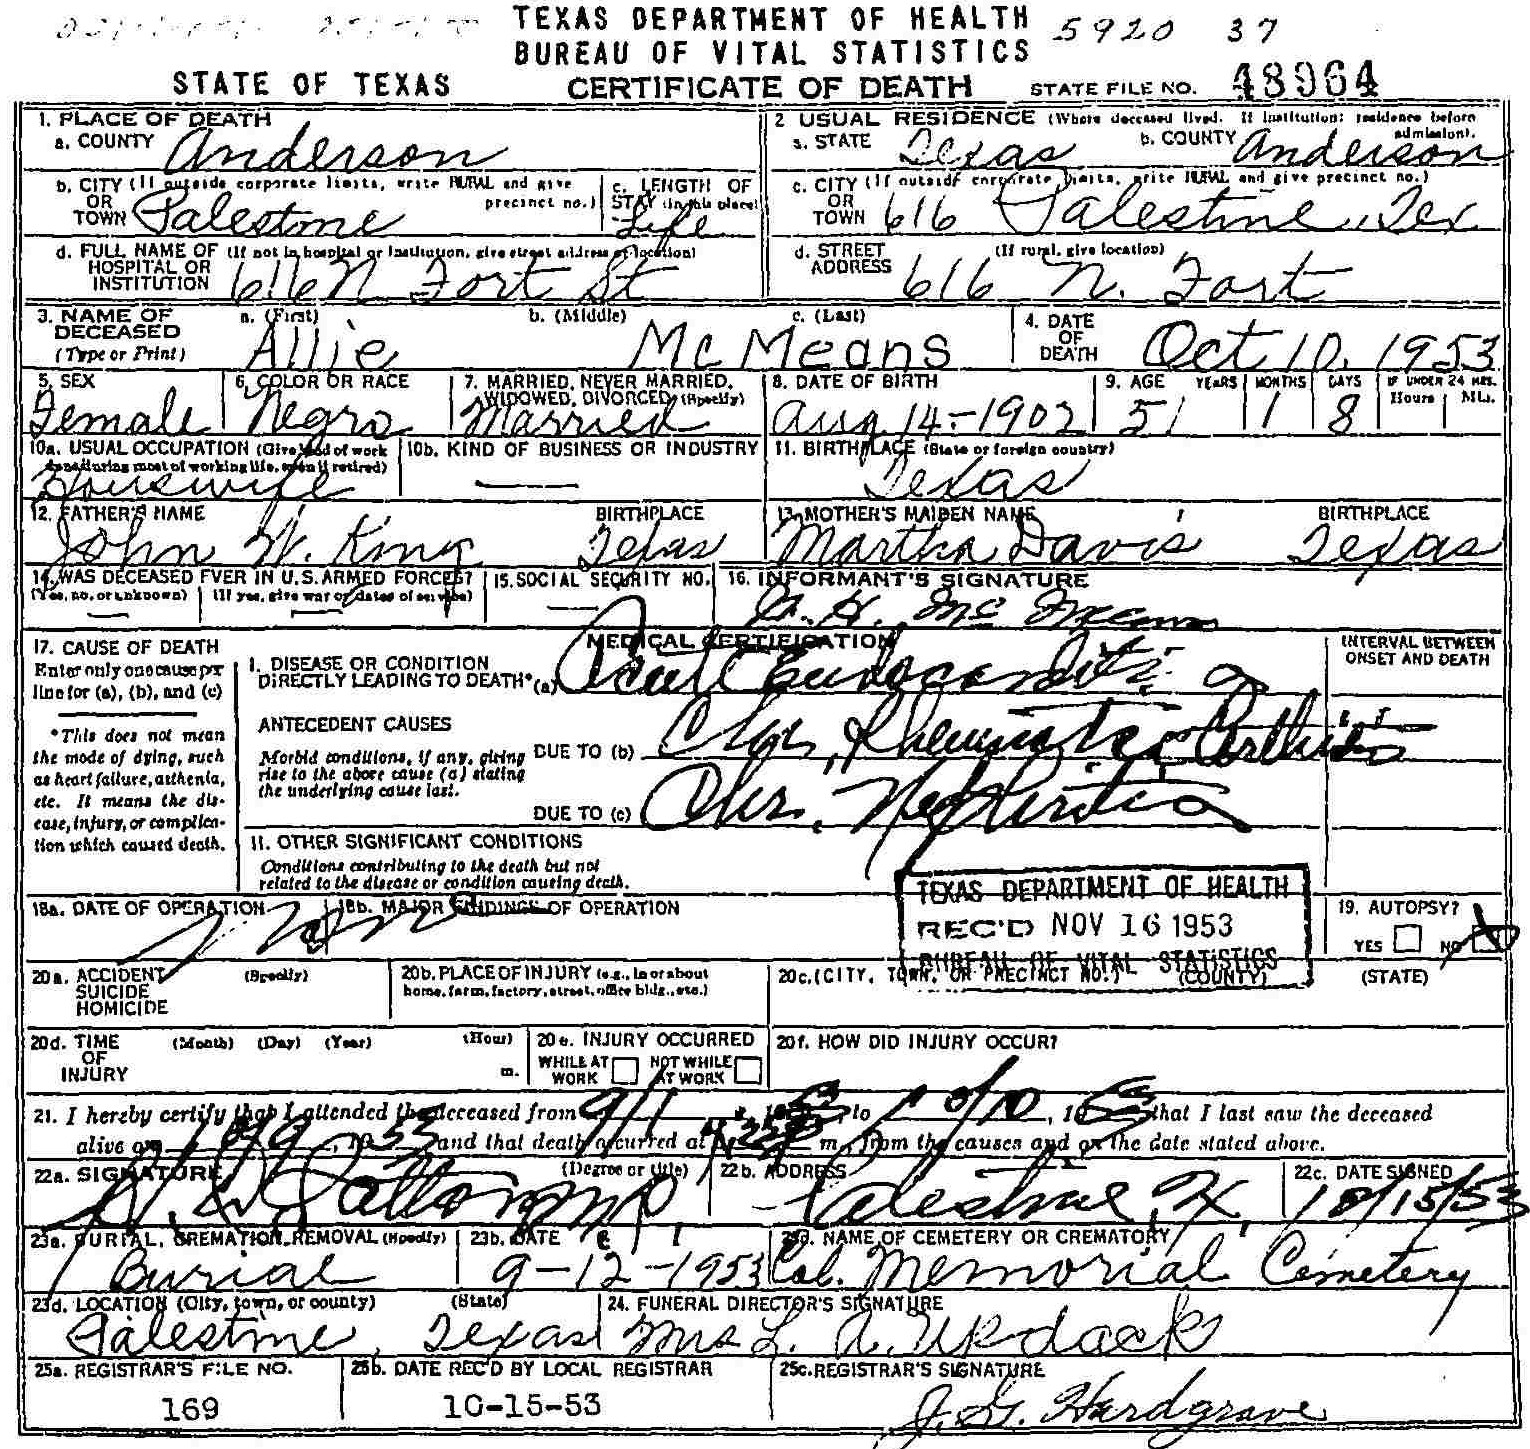 TEXAS DEPARTMENT OF HEALTH 5920 37
BUREAU OF VITAL STATISTICS
STATE OF TEXAS CERTIFICATE OF DEATH STATE FILE NO. 48964
1. PLACE OF DEATH
a. COUNTY Anderson
2 USUAL RESIDENCE (Where deceased lived. If institution: residence before admission).
a. STATE Texas b. COUNTY Anderson
b. CITY (If outside corporate limits, write RURAL and give precinct no.)
OR
TOWN Palestine
c. LENGTH OF
STAY (in this place)
Life
c. CITY (If outside corporate limits, write RURAL and give precinct no.)
OR
TOWN 616 Palestine, Tex
d. FULL NAME OF (If not in hospital or institution, give street address or location)
HOSPITAL OR
INSTITUTION 616 N Fort St
d. STREET (If rural, give location)
ADDRESS 616 N. Fort
3. NAME OF DECEASED (Type or Print)
a. (First) Allie b. (Middle) c. (Last) McMeans
4. DATE OF DEATH Oct 10, 1953
5. SEX Female
6. COLOR OR RACE Negro
7. MARRIED, NEVER MARRIED, WIDOWED, DIVORCED (Specify) Married
8. DATE OF BIRTH Aug 14-1902
9. AGE YEARS MONTHS DAYS IF UNDER 24 HRS. Hours Min.
51 1 8
10a. USUAL OCCUPATION (Give kind of work done during most of working life, even if retired)
Housewife
10b. KIND OF BUSINESS OR INDUSTRY
—
11. BIRTHPLACE (State or foreign country)
Texas
12. FATHER'S NAME BIRTHPLACE
John W. King Texas
13. MOTHER'S MAIDEN NAME BIRTHPLACE
Martha Davis Texas
14. WAS DECEASED EVER IN U.S. ARMED FORCES?
(Yes, no, or unknown) (If yes, give war or dates of service)
— —
15. SOCIAL SECURITY NO.
—
16. INFORMANT'S SIGNATURE
MEDICAL CERTIFICATION
17. CAUSE OF DEATH
Enter only one cause per
line for (a), (b), and (c)
*This does not mean
the mode of dying, such
as heart failure, asthenia,
etc. It means the dis-
ease, injury, or complica-
tion which caused death.
I. DISEASE OR CONDITION
DIRECTLY LEADING TO DEATH* (a) Acute Endocarditis
ANTECEDENT CAUSES
Morbid conditions, if any, giving
rise to the above cause (a) stating
the underlying cause last.
DUE TO (b) Chr. Rheumatic Arthritis
DUE TO (c) Chr. Nephritis
INTERVAL BETWEEN
ONSET AND DEATH
11. OTHER SIGNIFICANT CONDITIONS
Conditions contributing to the death but not
related to the disease or condition causing death.
TEXAS DEPARTMENT OF HEALTH
REC'D NOV 16 1953
BUREAU OF VITAL STATISTICS
18a. DATE OF OPERATION None
18b. MAJOR FINDINGS OF OPERATION
19. AUTOPSY?
YES NO
20a. ACCIDENT (Specify)
SUICIDE
HOMICIDE
20b. PLACE OF INJURY (e.g., in or about
home, farm, factory, street, office bldg., etc.)
20c. (CITY, TOWN, OR PRECINCT NO.) (COUNTY) (STATE)
20d. TIME (Month) (Day) (Year) (Hour)
OF
INJURY m.
20e. INJURY OCCURRED
WHILE AT WORK NOT WHILE AT WORK
20f. HOW DID INJURY OCCUR?
21. I hereby certify that I attended the deceased from 9/1, 1953, to 10/10, 1953 that I last saw the deceased
alive on 10/9, 1953 and that death occurred at m., from the causes and on the date stated above.
22a. SIGNATURE (Degree or title)
22b. ADDRESS Palestine, Tx.
22c. DATE SIGNED 10/15/53
23a. BURIAL, CREMATION, REMOVAL (Specify)
Burial
23b. DATE
9-12-1953
23c. NAME OF CEMETERY OR CREMATORY
Col. Memorial Cemetery
23d. LOCATION (City, town, or county) (State)
Palestine, Texas
24. FUNERAL DIRECTOR'S SIGNATURE
Mrs L. A. Updack
25a. REGISTRAR'S FILE NO.
169
25b. DATE REC'D BY LOCAL REGISTRAR
10-15-53
25c. REGISTRAR'S SIGNATURE
J. G. Hardgrave